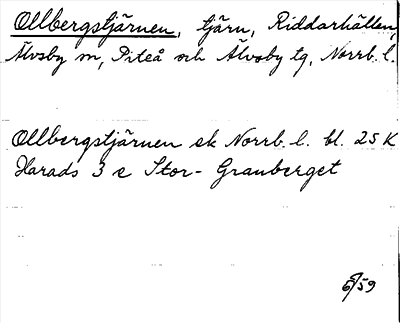 Ollbergstjärnen, tjärn, Riddarhällen,
Älvsby sn, Piteå och Älvsby tg, Norrb. l.
Ollbergstjärnen ek Norrb. l. bl. 25 K
Harads 3 e Stor-Granberget
/59